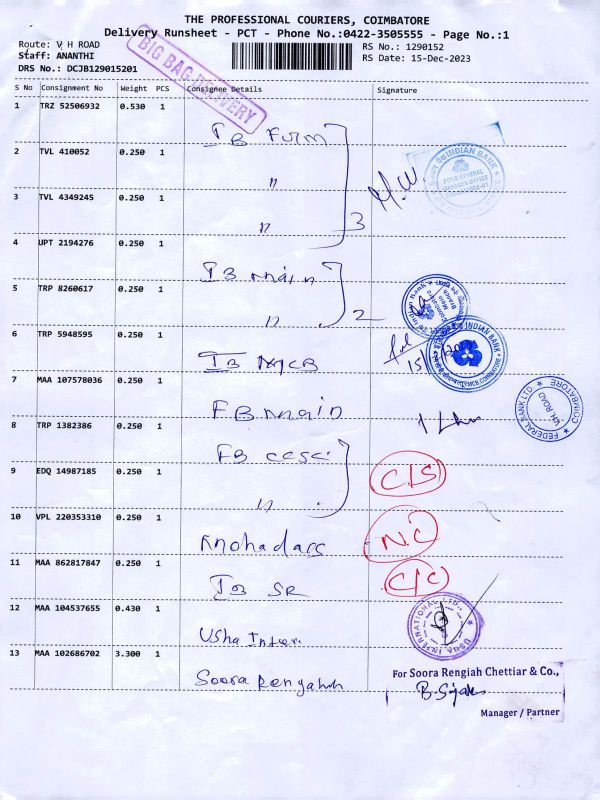 THE PROFESSIONAL COURIERS, COIMBATORE
Delivery Runsheet - PCT - Phone No.:0422-3505555 - Page No.:1
Route: V H ROAD
Staff: ANANTHI
DRS No.: DCJB129015201
RS No.: 1290152
RS Date: 15-Dec-2023
BIG BAG DELIVERY
S No Consignment No Weight PCS Consignee Details Signature
1 TRZ 52506932 0.530 1
IB Furm
2 TVL 410052 0.250 1
"
3 TVL 4349245 0.250 1
" 3
INDIAN BANK
4 UPT 2194276 0.250 1
IB main
5 TRP 8260617 0.250 1
" 2
6 TRP 5948595 0.250 1
IB MCB
INDIAN BANK
7 MAA 107578036 0.250 1
FB main
FEDERAL BANK LTD
COIMBATORE
8 TRP 1382386 0.250 1
FB
9 EDQ 14987185 0.250 1
"
C/S
10 VPL 220353310 0.250 1
N.C
11 MAA 862817847 0.250 1
IB SR
C/C
12 MAA 104537655 0.430 1
Usha Inter.
USHA INTERNATIONAL LTD.
13 MAA 102686702 3.300 1
Soora
For Soora Rengiah Chettiar & Co.,
Manager / Partner